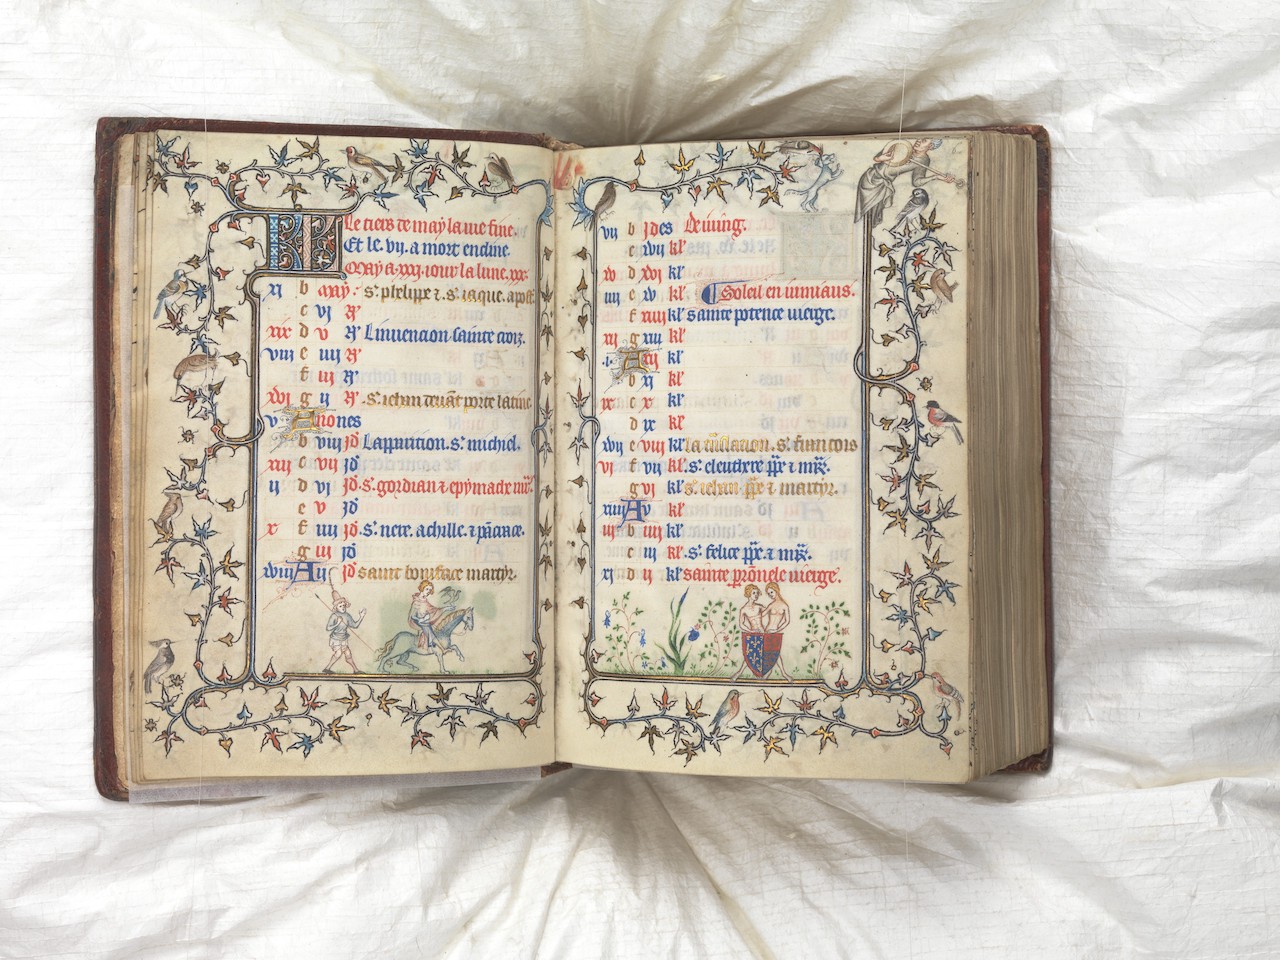 Le tiers de may la vie fine.
Et le .vij. a mort encline.
May a .xxxj. iour la lune .xxx.
xj b may . s. phelipe & s. iaque. apost
c vj N
xix d v N Linuencion sainte croiz.
viij e iiij N
f iij N
xvj g ij N .s. iehan deuant porte latine
v A nones
b viij Id Lapparition. s. michiel.
xiij c vij Id
ij d vj Id .s. gordian & epymache mr.
e v Id
x f iiij Id .s. nere. achille. & pancrace.
g iij Id
xviij A ij Id saint boniface martyr.
vij b Ides
c xvij kl
xv d xvj kl
iiij e xv kl Soleil en iumiaus.
f xiiij kl sainte potence vierge.
xij g xiij kl
.i. A xij kl
b xj kl
ix c x kl
d ix kl
xvij e viij kl la translation. s. francois
vj f vij kl .s. eleuthere ppe & mr.
g vj kl .s. iehan ppe & martyr.
xiiij A v kl
iij b iiij kl
c iij kl .s. felice ppe & mr.
xj d ij kl sainte peronele vierge.